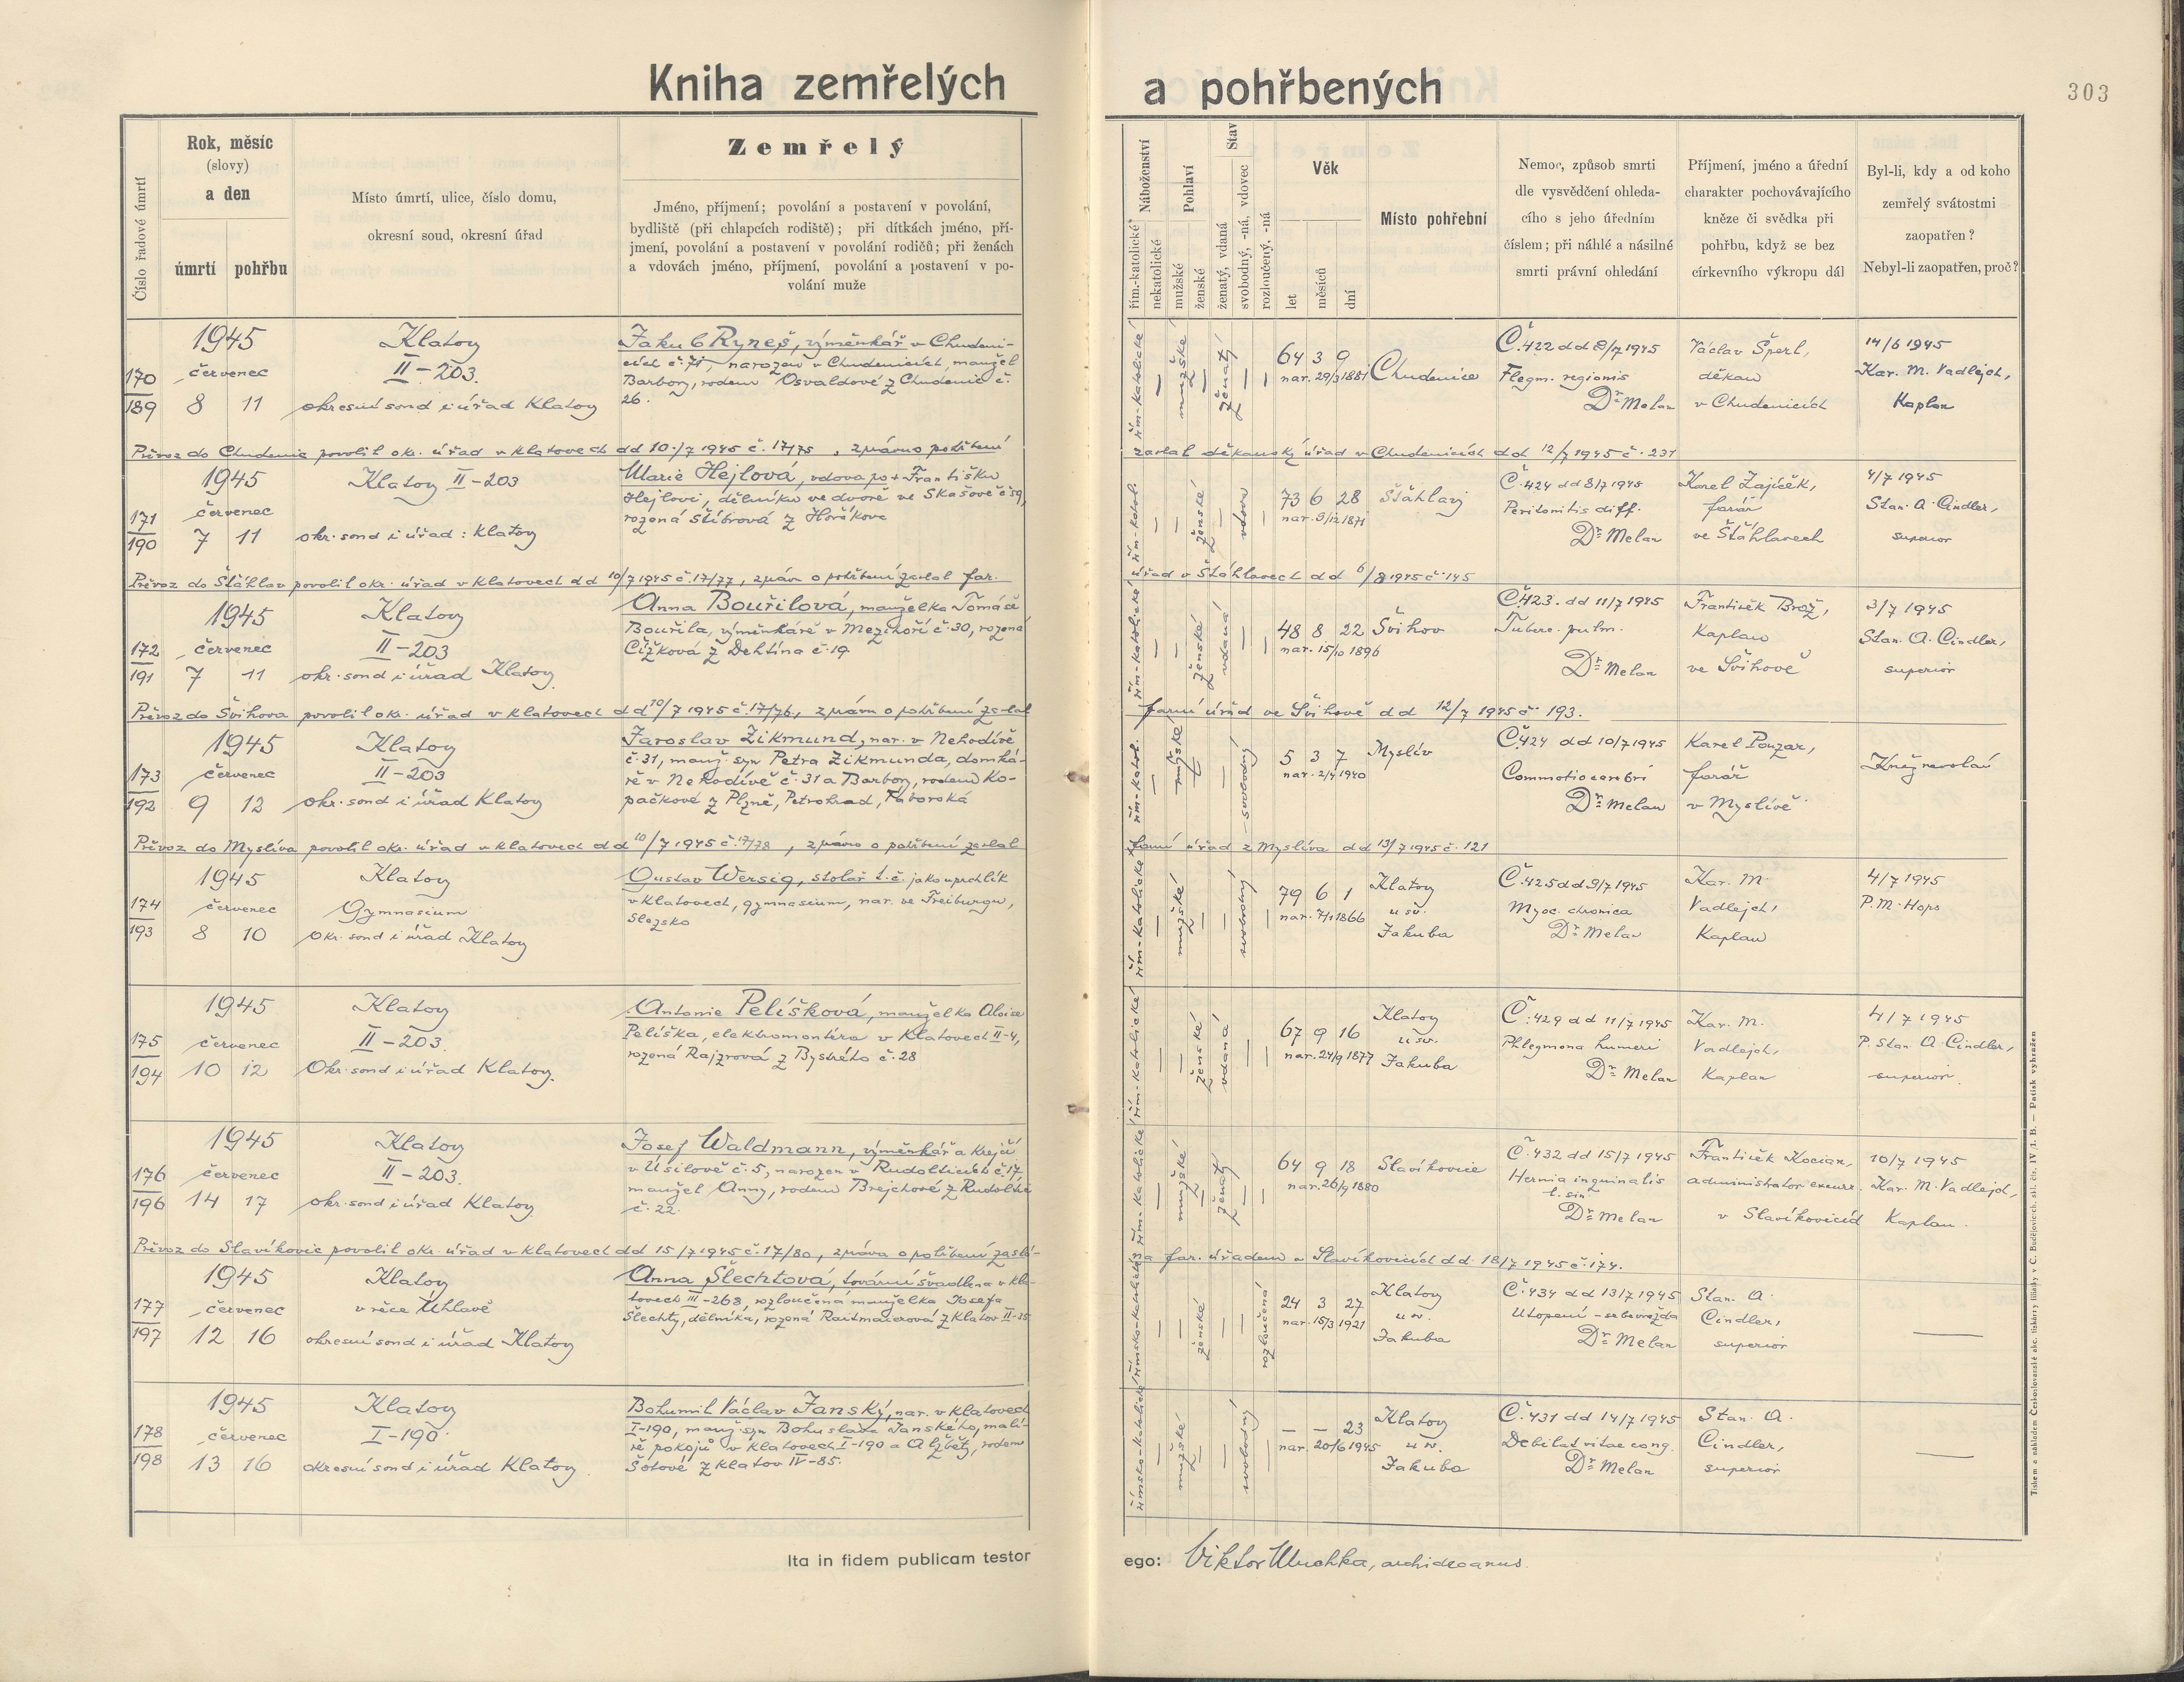 Kniha zemřelých a pohřbených
303
Číslo řadové úmrtí
Rok, měsíc
(slovy)
a den
úmrtí pohřbu
Místo úmrtí, ulice, číslo domu,
okresní soud, okresní úřad
Zemřelý
Jméno, příjmení; povolání a postavení v povolání,
bydliště (při chlapcích rodiště); při dítkách jméno, pří-
jmení, povolání a postavení v povolání rodičů; při ženách
a vdovách jméno, příjmení, povolání a postavení v po-
volání muže
Náboženství
řím.-katolické
nekatolické
Pohlaví
mužské
ženské
Stav
ženatý, vdaná
svobodný, -ná, vdovec
rozloučený, -ná
Věk
let
měsíců
dní
Místo pohřební
Nemoc, způsob smrti
dle vysvědčení ohleda-
cího s jeho úředním
číslem; při náhlé a násilné
smrti právní ohledání
Příjmení, jméno a úřední
charakter pochovávajícího
kněze či svědka při
pohřbu, když se bez
církevního výkropu dál
Byl-li, kdy a od koho
zemřelý svátostmi
zaopatřen?
Nebyl-li zaopatřen, proč?
170
189
1945
červenec
8 11
Klatovy
II-203.
okresní soud i úřad Klatovy
Jakub Ryneš, výměnkář v Chudeni-
cích č. 71, narozen v Chudenicích, manžel
Barbory, rodem Osvaldové z Chudenic č.
26.
řím-katolické
mužské
ženatý
64 3 9
nar. 29/3 1881
Chudenice
Č. 422 dd 8/7 1945
Flegm. regionis
Dr. Melan
Václav Šperl,
děkan
v Chudenicích
14/6 1945
Kar. M. Vadlejch,
Kaplan
Převoz do Chudenic povolil okr. úřad v Klatovech dd 10./7 1945 č. 17/75, zprávu o pohřbení
zaslal děkanský úřad v Chudenicích dd 12/7 1945 č. 231
171
190
1945
červenec
7 11
Klatovy II-203
okr. soud i úřad: Klatovy
Marie Hejlová, vdova po + Františku
Hejlovi, dělníku ve dvoře ve Skašově č 59,
rozená Stíbrová z Horšíkova
řím-katol.
ženské
vdova
73 6 28
nar. 9/12 1871
Šťáhlavy
Č. 424 dd 8/7 1945
Peritonitis diff.
Dr. Melan
Karel Zajíček,
farář
ve Šťáhlavech
4/7 1945
Stan. A. Cindler,
superior
Převoz do Šťáhlav povolil okr. úřad v Klatovech dd 10/7 1945 č. 17/77, zpráv. o pohřbení zaslal far.
úřad v Šťáhlavech dd 6/8 1945 č. 145
172
191
1945
červenec
7 11
Klatovy
II-203
okr. soud i úřad Klatovy
Anna Bouřilová, manželka Tomáše
Bouřila, výměnkáře v Mezihoří č. 30, rozená
Čížková z Dehtína č. 19
řím-katolické
ženské
vdaná
48 8 22
nar. 15/10 1896
Švihov
Č. 423. dd 11/7 1945
Tuberc. pulm.
Dr. Melan
František Brož,
Kaplan
ve Švihově
3/7 1945
Stan. A. Cindler,
superior
Převoz do Švihova povolil okr. úřad v Klatovech dd 10/7 1945 č. 17/76, zprávu o pohřbení zaslal
farní úřad ve Švihově dd 12/7 1945 č. 193.
173
192
1945
červenec
9 12
Klatovy
II-203
okr. soud i úřad Klatovy
Jaroslav Zikmund, nar. v Nehodívě
č. 31, manž. syn Petra Zikmunda, domká-
ře v Nehodívě č. 31 a Barbory, rodem Ko-
pačkové z Plzně, Petrohrad, Táborská
řím-katol.
mužské
svobodný
5 3 7
nar. 2/4 1940
Myslív
Č. 424 dd 10/7 1945
Commotio cerebri
Dr. Melan
Karel Pouzar,
farář
v Myslívě
Kněz nevolán
Převoz do Myslíva povolil okr. úřad v Klatovech dd 10/7 1945 č. 17/78, zprávu o pohřbení zaslal
farní úřad z Myslíva dd 13/7 1945 č. 121
174
193
1945
červenec
8 10
Klatovy
Gymnasium
Okr. soud i úřad Klatovy
Gustav Wersig, stolař t. č. jako uprchlík
v Klatovech, gymnasium, nar. ve Freiburgu,
Slezsko
řím-katolické
mužské
svobodný
79 6 1
nar. 7/1 1866
Klatovy
u sv.
Jakuba
Č. 425 dd 9/7 1945
Myoc. chronica
Dr. Melan
Kar. M.
Vadlejch,
Kaplan
4/7 1945
P. M. Hops
175
194
1945
červenec
10 12
Klatovy
II-203.
Okr. soud i úřad Klatovy.
Antonie Pelíšková, manželka Aloise
Pelíška, elektromontéra v Klatovech II-4,
rozená Rajzrová z Bystrého č. 28
řím-katolické
ženské
vdaná
67 9 16
nar. 24/9 1877
Klatovy
u sv.
Jakuba
Č. 429 dd 11/7 1945
Phlegmona humeri
Dr. Melan
Kar. M.
Vadlejch,
Kaplan
4/7 1945
P. Stan. A. Cindler,
superior.
176
196
1945
červenec
14 17
Klatovy
II-203.
okr. soud i úřad Klatovy
Josef Waldmann, výměnkář a krejčí
v Úsilově č. 5, narozen v Rudolticích č. 17,
manžel Anny, rodem Brejchové z Rudoltic
č. 22.
řím-katolické
mužské
ženatý
64 9 18
nar. 26/9 1880
Slavíkovice
Č. 432 dd 15/7 1945
Hernia inguinalis
l. sin
Dr. Melan
František Kocian,
administrator excurr.
v Slavíkovicích
10/7 1945
Kar. M. Vadlejch,
Kaplan.
Převoz do Slavíkovic povolil okr. úřad v Klatovech dd 15/7 1945 č. 17/80, zpráva o pohřbení zaslá-
na far. úřadem v Slavíkovicích dd. 18/7 1945 č. 174.
177
197
1945
červenec
12 16
Klatovy
v řece Úhlavě
okresní soud i úřad Klatovy
Anna Šlechtová, tovární švadlena v Kla-
tovech III-268, rozloučená manželka Josefa
Šlechty, dělníka, rozená Raitmaierová z Klatov II-35
římsko-katolické
ženské
rozloučená
24 3 27
nar. 15/3 1921
Klatovy
u sv.
Jakuba
Č. 434 dd 13/7 1945
Utopení - sebevražda
Dr. Melan
Stan. A.
Cindler,
superior
178
198
1945
červenec
13 16
Klatovy
I-190
okresní soud i úřad Klatovy
Bohumil Václav Janský, nar. v Klatovech
I-190, manž. syn Bohuslava Janského, malí-
ře pokojů v Klatovech I-190 a Alžběty, rodem
Šotové z Klatov IV-85.
římsko-katolické
mužské
svobodný
— — 23
nar. 20/6 1945
Klatovy
u sv.
Jakuba
Č. 431 dd 14/7 1945
Debilat vitae cong.
Dr. Melan
Stan. A.
Cindler,
superior
Ita in fidem publicam testor ego: Viktor, archidecanus.
Tiskem a nákladem Českoslovanské akc. tiskárny filiálky v Č. Budějovicích. skl. čís. IV /1. B. — Patisk vyhrazen